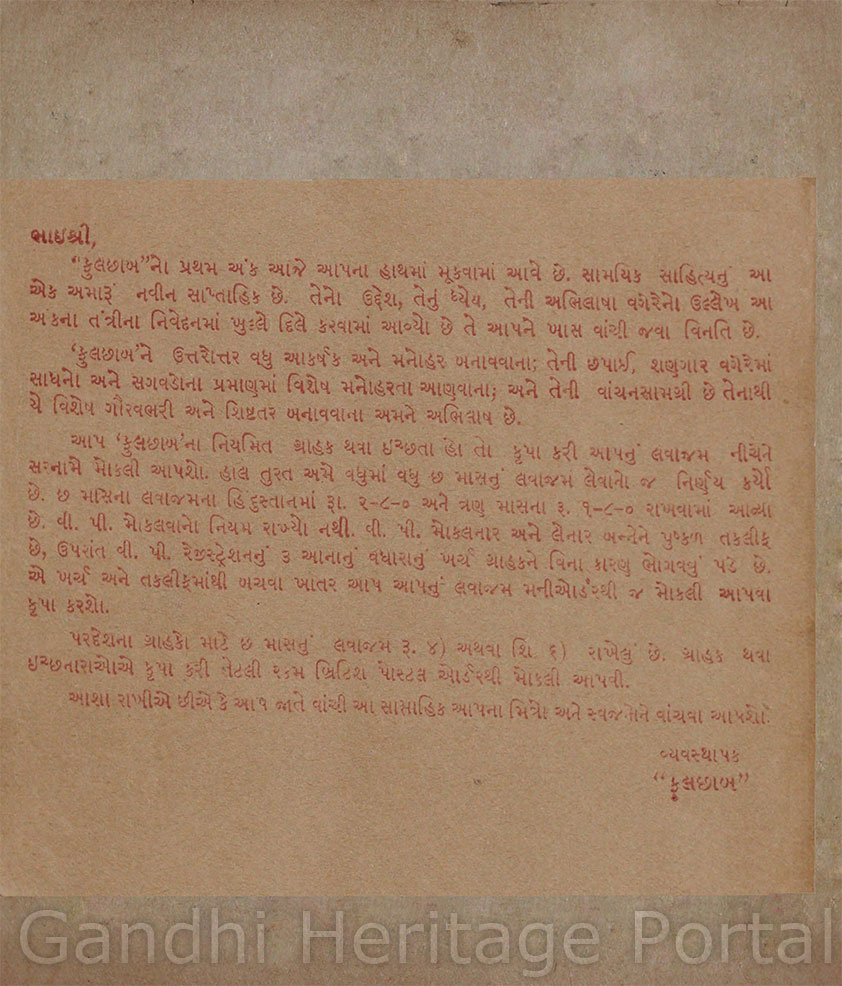 ભાઇશ્રી,
“ફુલછાબ”નો પ્રથમ અંક આજે આપના હાથમાં મૂકવામાં આવે છે. સામયિક સાહિત્યનું આ
એક અમારૂં નવીન સાપ્તાહિક છે. તેનો ઉદ્દેશ, તેનું ધ્યેય, તેની અભિલાષા વગેરેનો ઉલ્લેખ આ
અંકના તંત્રીના નિવેદનમાં ખુલ્લે દિલે કરવામાં આવ્યો છે તે આપને ખાસ વાંચી જવા વિનતિ છે.
‘ફુલછાબ’ને ઉત્તરોત્તર વધુ આકર્ષક અને મનોહર બનાવવાના; તેની છપાઈ, શણગાર વગેરેમાં
સાધનો અને સગવડોના પ્રમાણમાં વિશેષ મનોહરતા આણવાના; અને તેની વાંચનસામગ્રી છે તેનાથી
યે વિશેષ ગૌરવભરી અને શિષ્ટતર બનાવવાના અમને અભિલાષ છે.
આપ ‘ફુલછાબ’ના નિયમિત ગ્રાહક થવા ઇચ્છતા હો તો કૃપા કરી આપનું લવાજમ નીચેને
સરનામે મોકલી આપશો. હાલ તુરત અમે વધુમાં વધુ છ માસનું લવાજમ લેવાનો જ નિર્ણય કર્યો
છે. છ માસના લવાજમના હિંદુસ્તાનમાં રૂા. ૨-૮-૦ અને ત્રણ માસના રૂ. ૧-૮-૦ રાખવામાં આવ્યા
છે. વી. પી. મોકલવાનો નિયમ રાખ્યો નથી. વી. પી. મોકલનાર અને લેનાર બન્નેને પુષ્કળ તકલીફ
છે, ઉપરાંત વી. પી. રેજીસ્ટ્રેશનનું ૩ આનાનું વધારાનું ખર્ચ ગ્રાહકને વિના કારણ ભોગવવું પડે છે.
એ ખર્ચ અને તકલીફમાંથી બચવા ખાતર આપ આપનું લવાજમ મનીઓર્ડરથી જ મોકલી આપવા
કૃપા કરશો.
પરદેશના ગ્રાહકો માટે છ માસનું લવાજમ રૂ. ૪) અથવા શિ. ૬) રાખેલું છે. ગ્રાહક થવા
ઇચ્છનારાઓએ કૃપા કરી તેટલી રકમ બ્રિટિશ પોસ્ટલ ઓર્ડરથી મોકલી આપવી.
આશા રાખીએ છીએ કે આપ જાતે વાંચી આ સાપ્તાહિક આપના મિત્રો અને સ્વજનોને વાંચવા આપશો.
વ્યવસ્થાપક
“ફુલછાબ”
Gandhi Heritage Portal